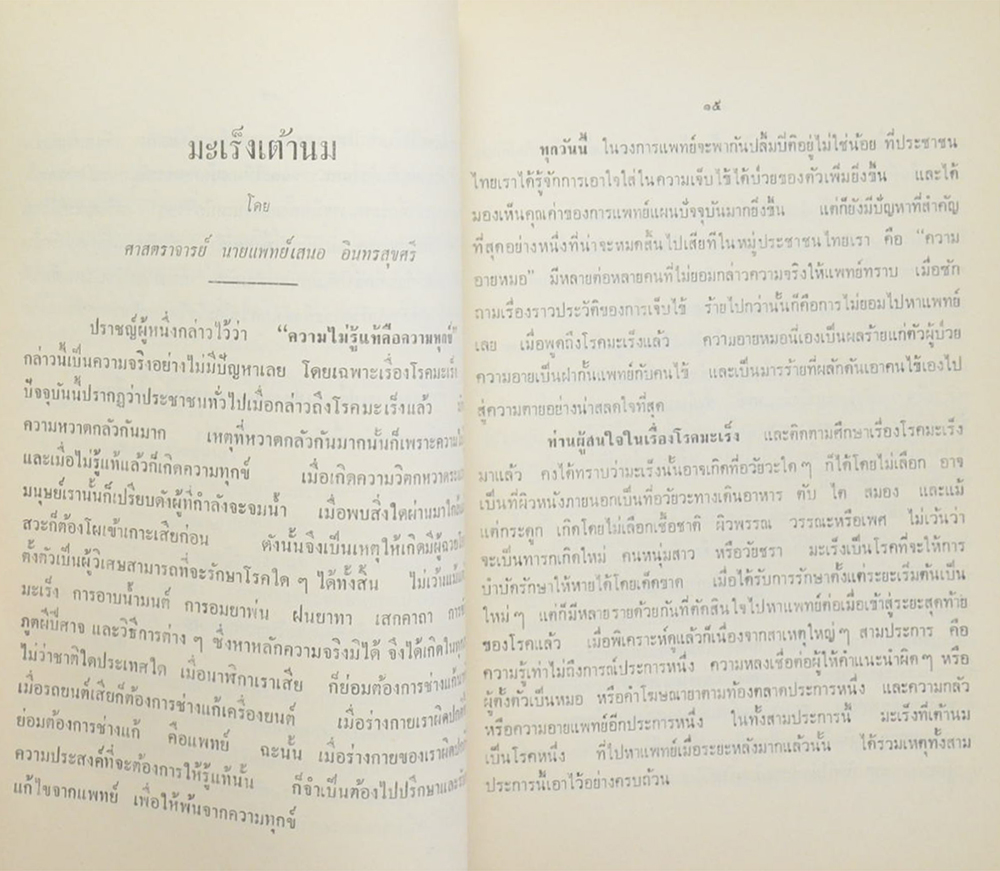 มะเร็งเต้านม
โดย
ศาสตราจารย์ นายแพทย์เสนอ อินทรสุขศรี
ปราชญ์ผู้หนึ่งกล่าวไว้ว่า “ความไม่รู้แท้คือความทุกข์”
กล่าวนี้เป็นความจริงอย่างไม่มีปัญหาเลย โดยเฉพาะเรื่องโรคมะเร็ง
ปัจจุบันนี้ปรากฏว่าประชาชนทั่วไปเมื่อกล่าวถึงโรคมะเร็งแล้ว
ความหวาดกลัวกันมาก เหตุที่หวาดกลัวกันมากนั้นก็เพราะความ
และเมื่อไม่รู้แท้แล้วก็เกิดความทุกข์ เมื่อเกิดความวิตกหวาด
มนุษย์เรานั้นก็เปรียบดังผู้ที่กำลังจะจมน้ำ เมื่อพบสิ่งใดผ่านมา
สวะก็ต้องโผเข้าเกาะเสียก่อน ดังนั้นจึงเป็นเหตุให้เกิดมีผู้
ตั้งตัวเป็นผู้วิเศษสามารถที่จะรักษาโรคใด ๆ ได้ทั้งสิ้น ไม่เว้นแม้แต่
มะเร็ง การอาบน้ำมนต์ การอมยาพ่น ฝนยาทา เสกคาถา
ภูตผีปีศาจ และวิธีการต่าง ๆ ซึ่งหาหลักความจริงมิได้ จึงได้เกิดใน
ไม่ว่าชาติใดประเทศใด เมื่อนาฬิกาเราเสีย ก็ย่อมต้องการช่างแก้
เมื่อรถยนต์เสียก็ต้องการช่างแก้เครื่องยนต์ เมื่อร่างกายเราผิดปกติ
ย่อมต้องการช่างแก้ คือแพทย์ ฉะนั้น เมื่อร่างกายของเราผิด
ความประสงค์ที่จะต้องการให้รู้แท้นั้น ก็จำเป็นต้องไปปรึกษาและ
แก้ไขจากแพทย์ เพื่อให้พ้นจากความทุกข์
๑๕
ทุกวันนี้ ในวงการแพทย์จะพากันปลื้มปีติอยู่ไม่ใช่น้อย ที่ประชาชน
ไทยเราได้รู้จักการเอาใจใส่ในความเจ็บไข้ได้ป่วยของตัวเพิ่มยิ่งขึ้น และได้
มองเห็นคุณค่าของการแพทย์แผนปัจจุบันมากยิ่งขึ้น แต่ก็ยังมีปัญหาที่สำคัญ
ที่สุดอย่างหนึ่งที่น่าจะหมดสิ้นไปเสียทีในหมู่ประชาชนไทยเรา คือ “ความ
อายหมอ” มีหลายต่อหลายคนที่ไม่ยอมกล่าวความจริงให้แพทย์ทราบ เมื่อซัก
ถามเรื่องราวประวัติของการเจ็บไข้ ร้ายไปกว่านั้นก็คือการไม่ยอมไปหาแพทย์
เลย เมื่อพูดถึงโรคมะเร็งแล้ว ความอายหมอนี่เองเป็นผลร้ายแก่ตัวผู้ป่วย
ความอายเป็นฝากั้นแพทย์กับคนไข้ และเป็นมารร้ายที่ผลักดันเอาคนไข้เองไป
สู่ความตายอย่างน่าสลดใจที่สุด
ท่านผู้สนใจในเรื่องโรคมะเร็ง และติดตามศึกษาเรื่องโรคมะเร็ง
มาแล้ว คงได้ทราบว่ามะเร็งนั้นอาจเกิดที่อวัยวะใด ๆ ก็ได้โดยไม่เลือก อาจ
เป็นที่ผิวหนังภายนอกเป็นที่อวัยวะทางเดินอาหาร ตับ ไต สมอง และแม้
แต่กระดูก เกิดโดยไม่เลือกเชื้อชาติ ผิวพรรณ วรรณะหรือเพศ ไม่เว้นว่า
จะเป็นทารกเกิดใหม่ คนหนุ่มสาว หรือวัยชรา มะเร็งเป็นโรคที่จะให้การ
บำบัดรักษาให้หายได้โดยเด็ดขาด เมื่อได้รับการรักษาตั้งแต่ระยะเริ่มต้นเป็น
ใหม่ๆ แต่ก็มีหลายรายด้วยกันที่ตัดสินใจไปหาแพทย์ต่อเมื่อเข้าสู่ระยะสุดท้าย
ของโรคแล้ว เมื่อพิเคราะห์ดูแล้วก็เนื่องจากสาเหตุใหญ่ๆ สามประการ คือ
ความรู้เท่าไม่ถึงการณ์ประการหนึ่ง ความหลงเชื่อต่อผู้ให้คำแนะนำผิดๆ หรือ
ผู้ตั้งตัวเป็นหมอ หรือคำโฆษณายาตามท้องตลาดประการหนึ่ง และความกลัว
หรือความอายแพทย์อีกประการหนึ่ง ในทั้งสามประการนี้ มะเร็งที่เต้านม
เป็นโรคหนึ่ง ที่ไปหาแพทย์เมื่อระยะหลังมากแล้วนั้น ได้รวมเหตุทั้งสาม
ประการนี้เอาไว้อย่างครบถ้วน